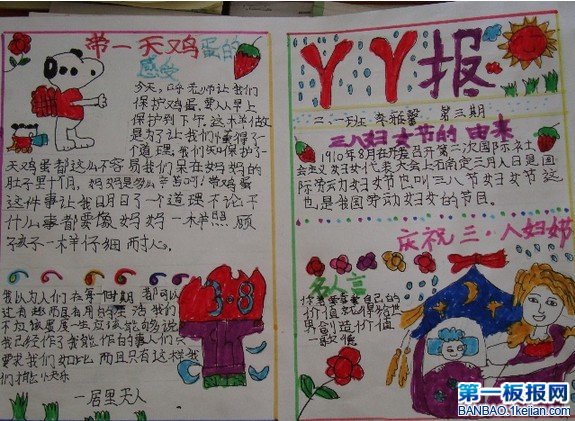 带一天鸡蛋的
感受
今天，老师让我们
保护鸡蛋，要从早上
保护到下午，这样做
是为了让我们懂得了一
个道理，我们知保护了一
天鸡蛋都这么不容易我们呆在妈妈的
肚子里十个月，妈妈是多么辛苦呵！带鸡蛋
这件事让我明日了一个道理不论干
什么事都要像妈妈一样照顾
孩子一样仔细而耐心。
3·8
我以为人们在
过有趣而且有用的生活
不应该虚度一生应该能够说
我已经作了我能作的事人们
要求我们如此而且只有这样我
们才能小天乐
—居里夫人
丫丫报
二、一班 李雅馨 第三期
三八妇女节的由来
1910年8月在丹麦召开第二次国际社
会主义妇女代表大会上右南定三月八日是国
际劳动妇女节也叫三八节妇女节这
也是我国劳动妇女的节目。
庆祝三·八妇女节
名人言
自己的
价值就得给世
界创造价值
一歌德
第一板报网
BANBAO.1kejian.com